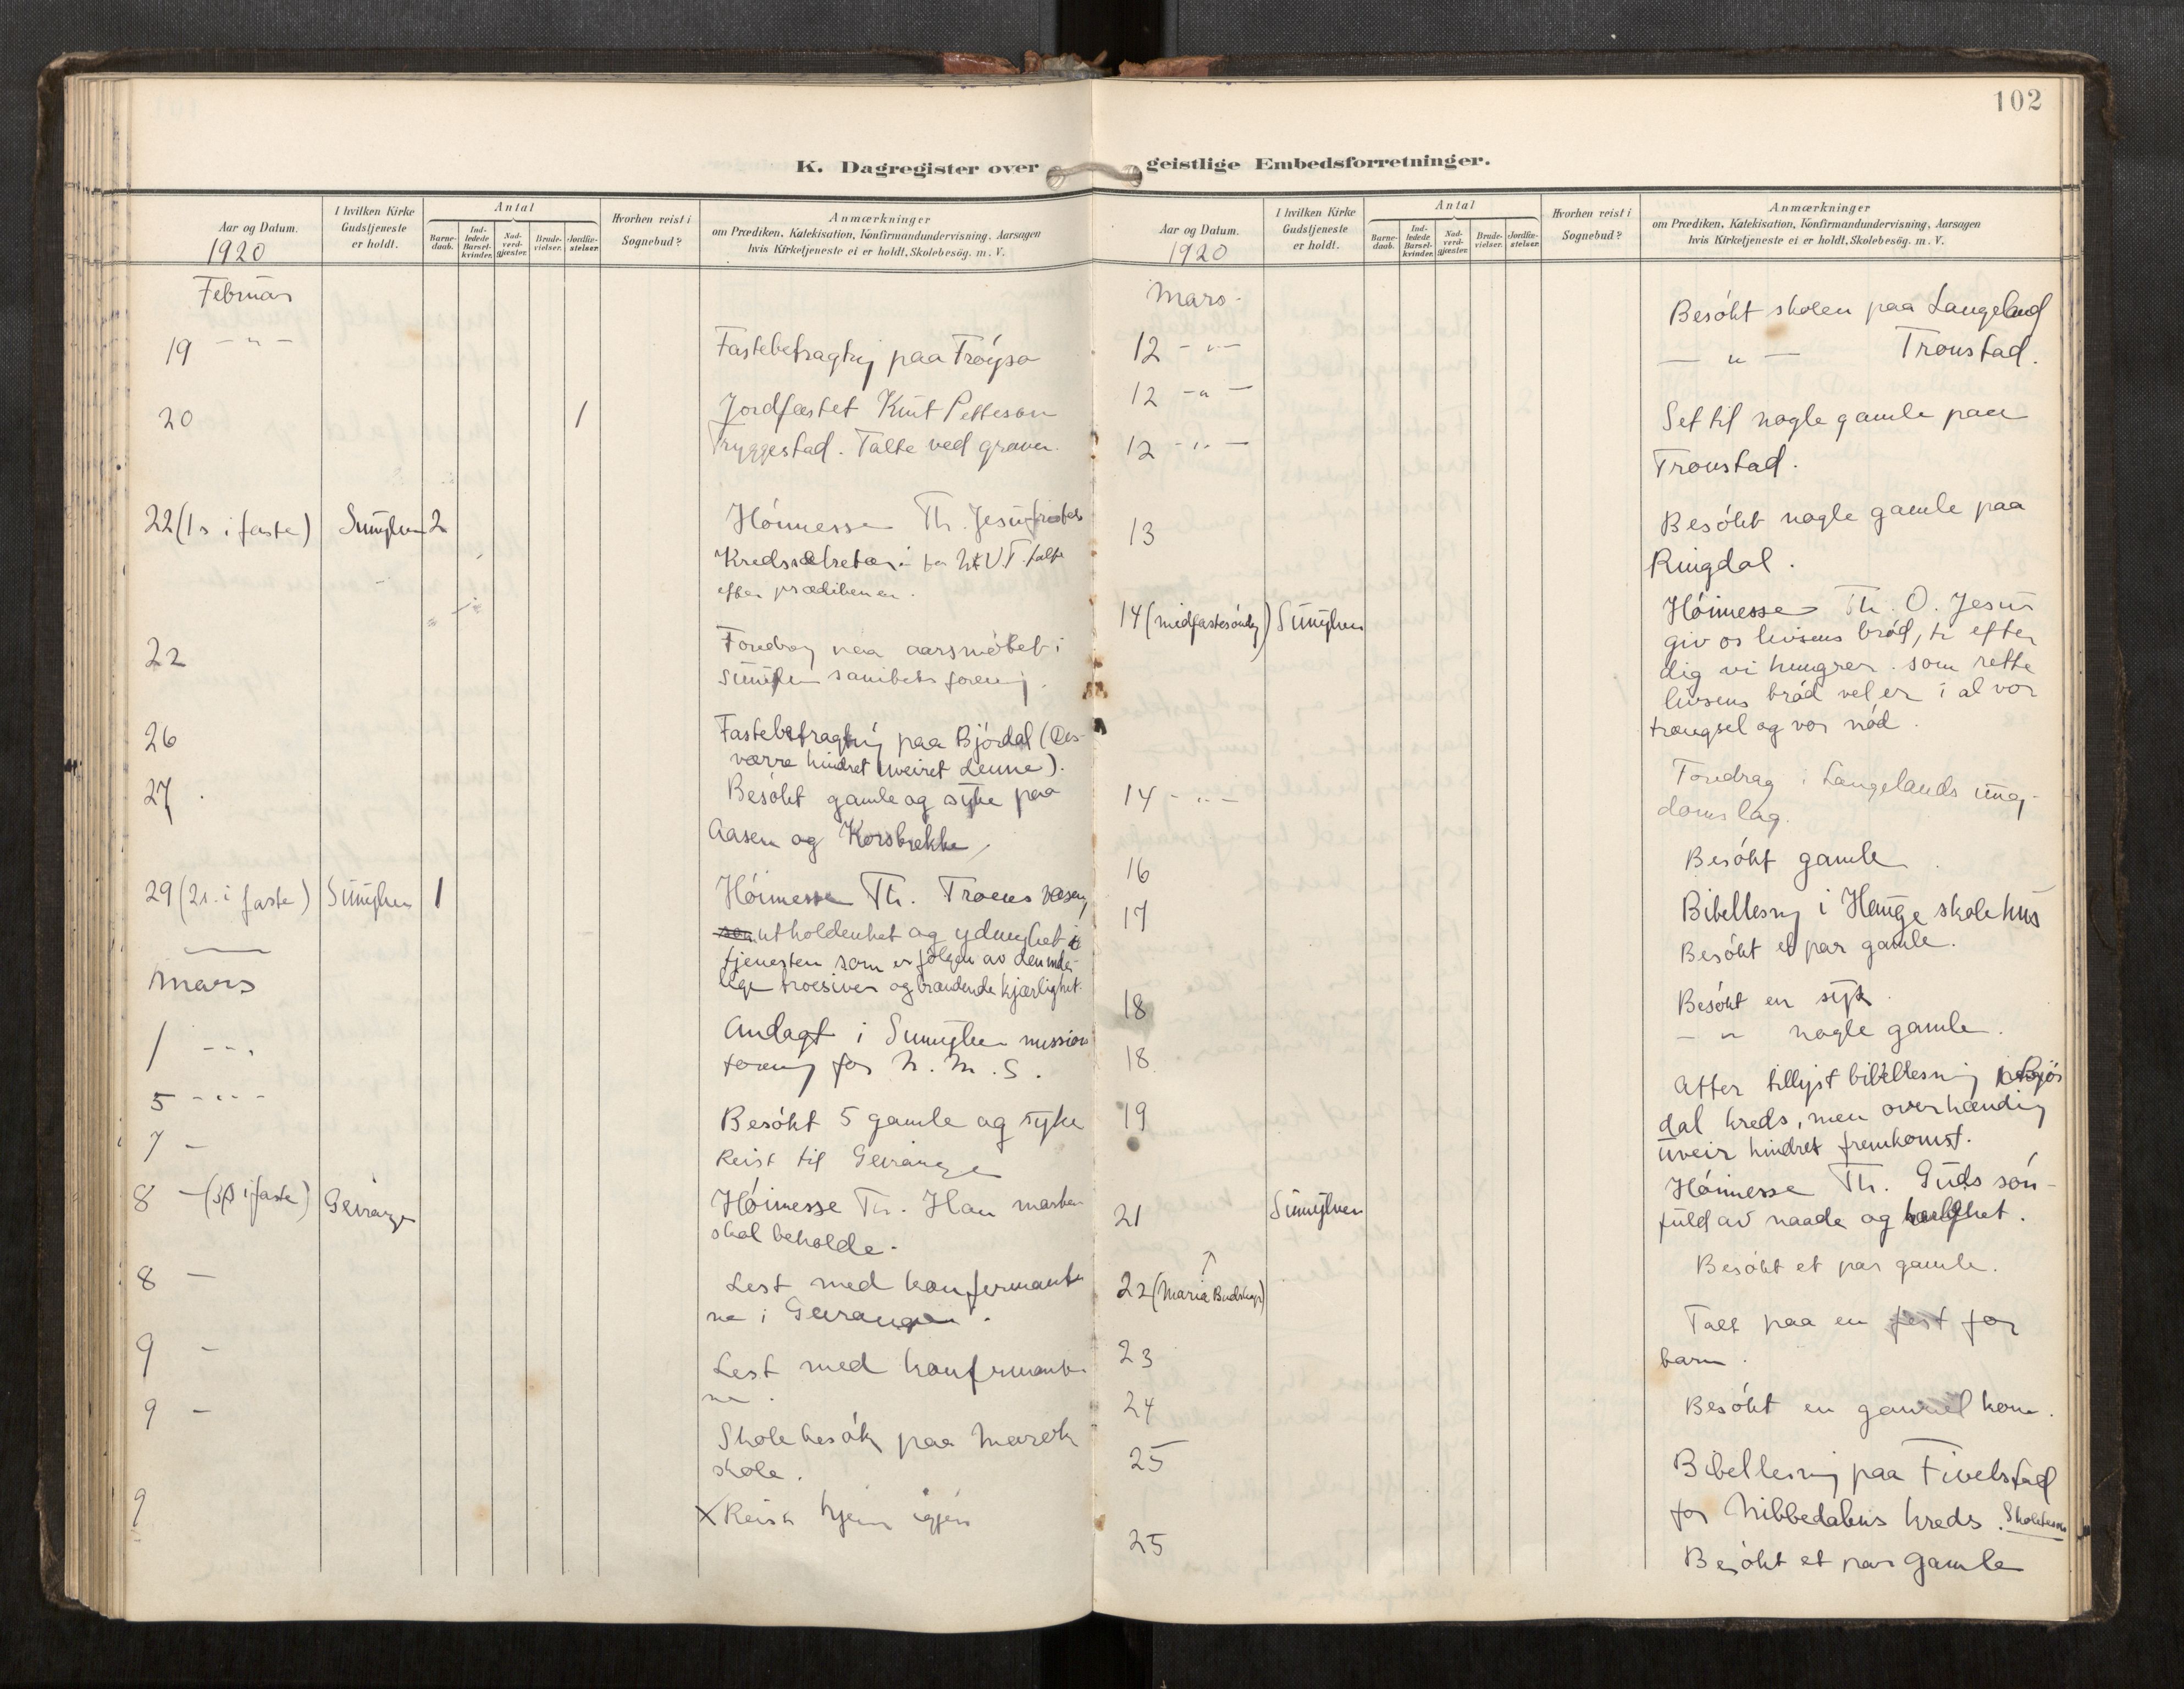 102
K. Dagregister over geistlige Embedsforretninger.
Aar og Datum.
1920
I hvilken Kirke Gudstjeneste er holdt.
Antal
Barnedaab.
Indledede Barselkvinder.
Nadverdgjæster.
Brudevielser.
Jordfæstelser.
Hvorhen reist i Sognebud?
Anmærkninger
om Prædiken, Katekisation, Konfirmandundervisning, Aarsagen
hvis Kirketjeneste ei er holdt, Skolebesøg. m. V.
Februar
19 - " - Fastebetragtng paa Frøysa
20 1 Jordfæstet Knut Petterson
Tryggestad. Talte ved graven.
22 (1 s i faste) Sunylven 2 Høimesse Th. Jesu fristels
Kredssekretær i talte
efter prædikenen.
22 Foredrag paa aarsmøtet i
Sunylven sanitetsforening.
26 Fastebetragtng paa Bjørdal (Des-
værre hindret uveiret denne).
27. Besøkt gamle og syke paa
Aasen og Korsbrekke
29 (2 s. i faste) Sunylven 1 Høimesse Th. Troens væsen,
utholdenhet og ydmyghet i
tjenesten som er følgen av den inder-
lige troesiver og brændende kjærlighet.
Mars
1 - " - Andagt i Sunylven mission
forening for N. M. S.
5 - " - Besøkt 5 gamle og syke
7 - Reist til Geiranger
8 - (3 s i faste) Geiranger Høimesse Th. Han marken
skal beholde.
8 - Lest med konfirmante
ne i Geiranger.
9 - Lest med konfirmante
ne.
9 - Skolebesøk paa Marok
skole.
9 X Reist hjem igjen
Aar og Datum.
1920
I hvilken Kirke Gudstjeneste er holdt.
Antal
Barnedaab.
Indledede Barselkvinder.
Nadverdgjæster.
Brudevielser.
Jordfæstelser.
Hvorhen reist i Sognebud?
Anmærkninger
om Prædiken, Katekisation, Konfirmandundervisning, Aarsagen
hvis Kirketjeneste ei er holdt, Skolebesøg. m. V.
Mars -
12 - " - Besøkt skolen paa Langeland
12 - " - - " - Tronstad.
12 - " - Set til nogle gamle paa
Tronstad.
13 Besøkt nogle gamle paa
Ringdal.
14 (midfastesøndg) Sunylven Høimesse Th. O. Jesus
giv os livsens brød, ti efter
dig vi hungrer. som rette
livsens brød vel er i al vor
trængsel og vor nød.
14 - " - Foredrag i Langelands ung-
domslag.
16 Besøkt gamle.
17 Bibellesng i Hauge skolehus
Besøkt et par gamle.
18 Besøkt en syk.
18 - " nogle gamle.
19 Atter tillyst bibellesning i Bjør
dal kreds, men overhændig
uveir hindret fremkomst.
21 Sunylven Høimesse Th. Guds søn
fuld av naade og herlighet.
22 (Maria Budskap) Besøkt et par gamle.
23 Talt paa en fest for
barn.
24 Besøkt en gammel kone.
25 Bibellesning paa Fivelstad
for Nibbedalens kreds.
25 Besøkt et par gamle